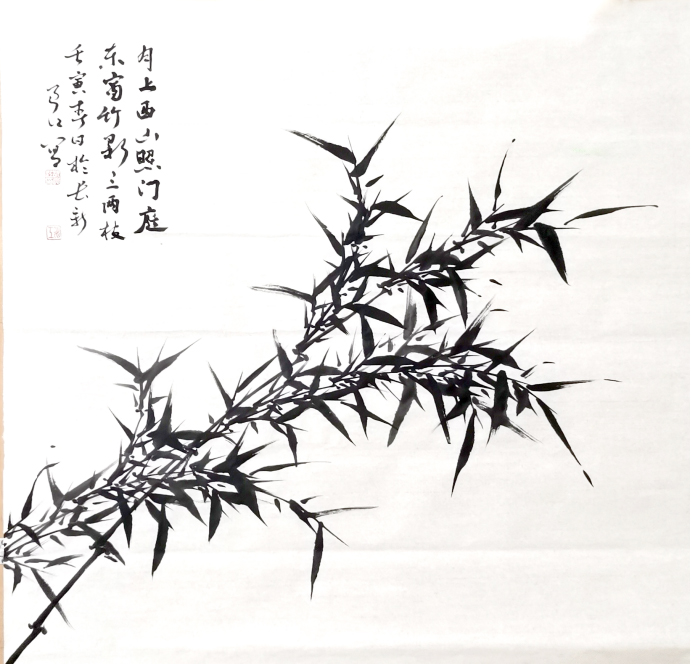 月上西山照门庭
东窗竹影三两枝
壬寅春日於长新